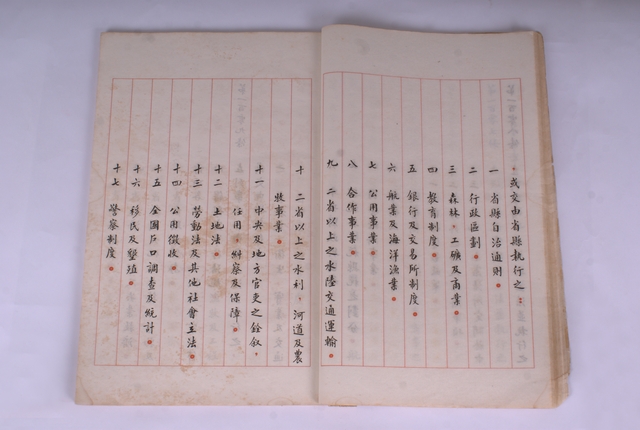 或交由省縣執行之：
一　省縣自治通則。
二　行政區劃。
三　森林，工礦及商業。
四　教育制度。
五　銀行及交易所制度。
六　航業及海洋漁業。
七　公用事業。
八　合作事業。
九　二省以上之水陸交通運輸。
十　二省以上之水利，河道及農
牧事業。
十一　中央及地方官吏之銓叙，
任用，糾察及保障。
十二　土地法。
十三　勞動法及其他社會立法。
十四　公用徵收。
十五　全國戶口調查及統計。
十六　移民及墾殖。
十七　警察制度。